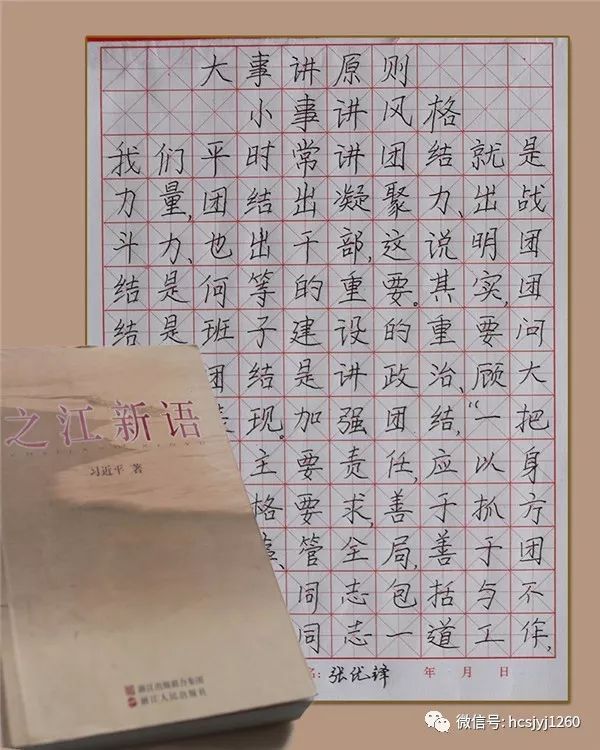 大事讲原则
小事讲风格
我们平时常讲团结就是
力量,团结出凝聚力、出战
斗力、也出干部,这说明团
结是何等的重要。其实,团
结是班子建设的重要问
团结是讲政治、顾大
现。加强团结,“一把
主要责任,应以身
格要求,善于抓方
、管全局,善于团
同志包括与不
同志一道工作,
名:张优锋 年 月 日
之江新语
习近平 著
浙江出版联合集团
浙江人民出版社
微信号: hcsjyj1260